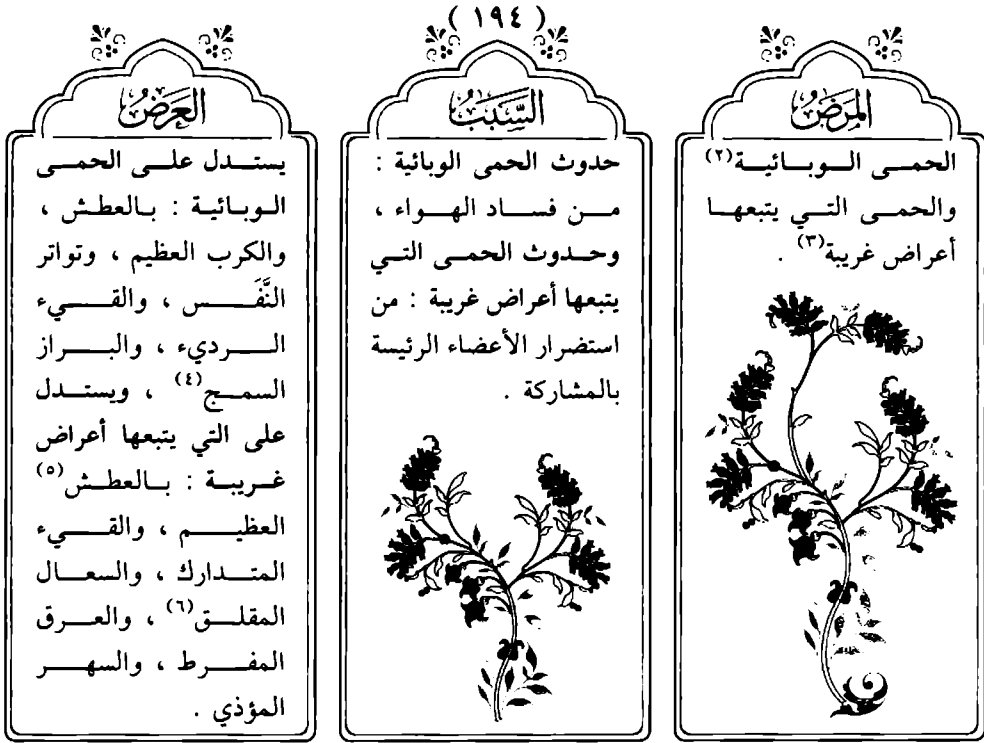 ( ١٩٤ )
المَرَضُ
الحمى الوبائية(٢)
والحمى التي يتبعها
أعراض غريبة(٣) .
السَّبَبُ
حدوث الحمى الوبائية :
من فساد الهواء ،
وحدوث الحمى التي
يتبعها أعراض غريبة : من
استضرار الأعضاء الرئيسة
بالمشاركة .
العَرَضُ
يستدل على الحمى
الوبائية : بالعطش ،
والكرب العظيم ، وتواتر
النَّفَس ، والقيء
الرديء ، والبراز
السمج(٤) ، ويستدل
على التي يتبعها أعراض
غريبة : بالعطش(٥)
العظيم ، والقيء
المتدارك ، والسعال
المقلق(٦) ، والعرق
المفرط ، والسهر
المؤذي .